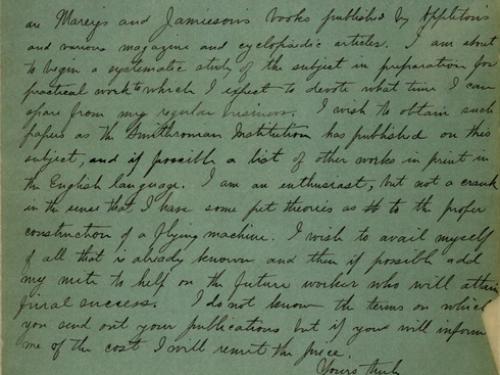 are Marey's and Jamieson's books published by Appleton's
and various magazine and cyclopaedic articles. I am about
to begin a systematic study of the subject in preparation for
practical work to which I expect to devote what time I can
spare from my regular business. I wish to obtain such
papers as the Smithsonian Institution has published on this
subject, and if possible a list of other works in print in
the English language. I am an enthusiast, but not a crank
in the sense that I have some pet theories as to the proper
construction of a flying machine. I wish to avail myself
of all that is already known and then if possible add
my mite to help on the future worker who will attain
final success. I do not know the terms on which
you send out your publications but if you will inform
me of the cost I will remit the price.
Yours truly